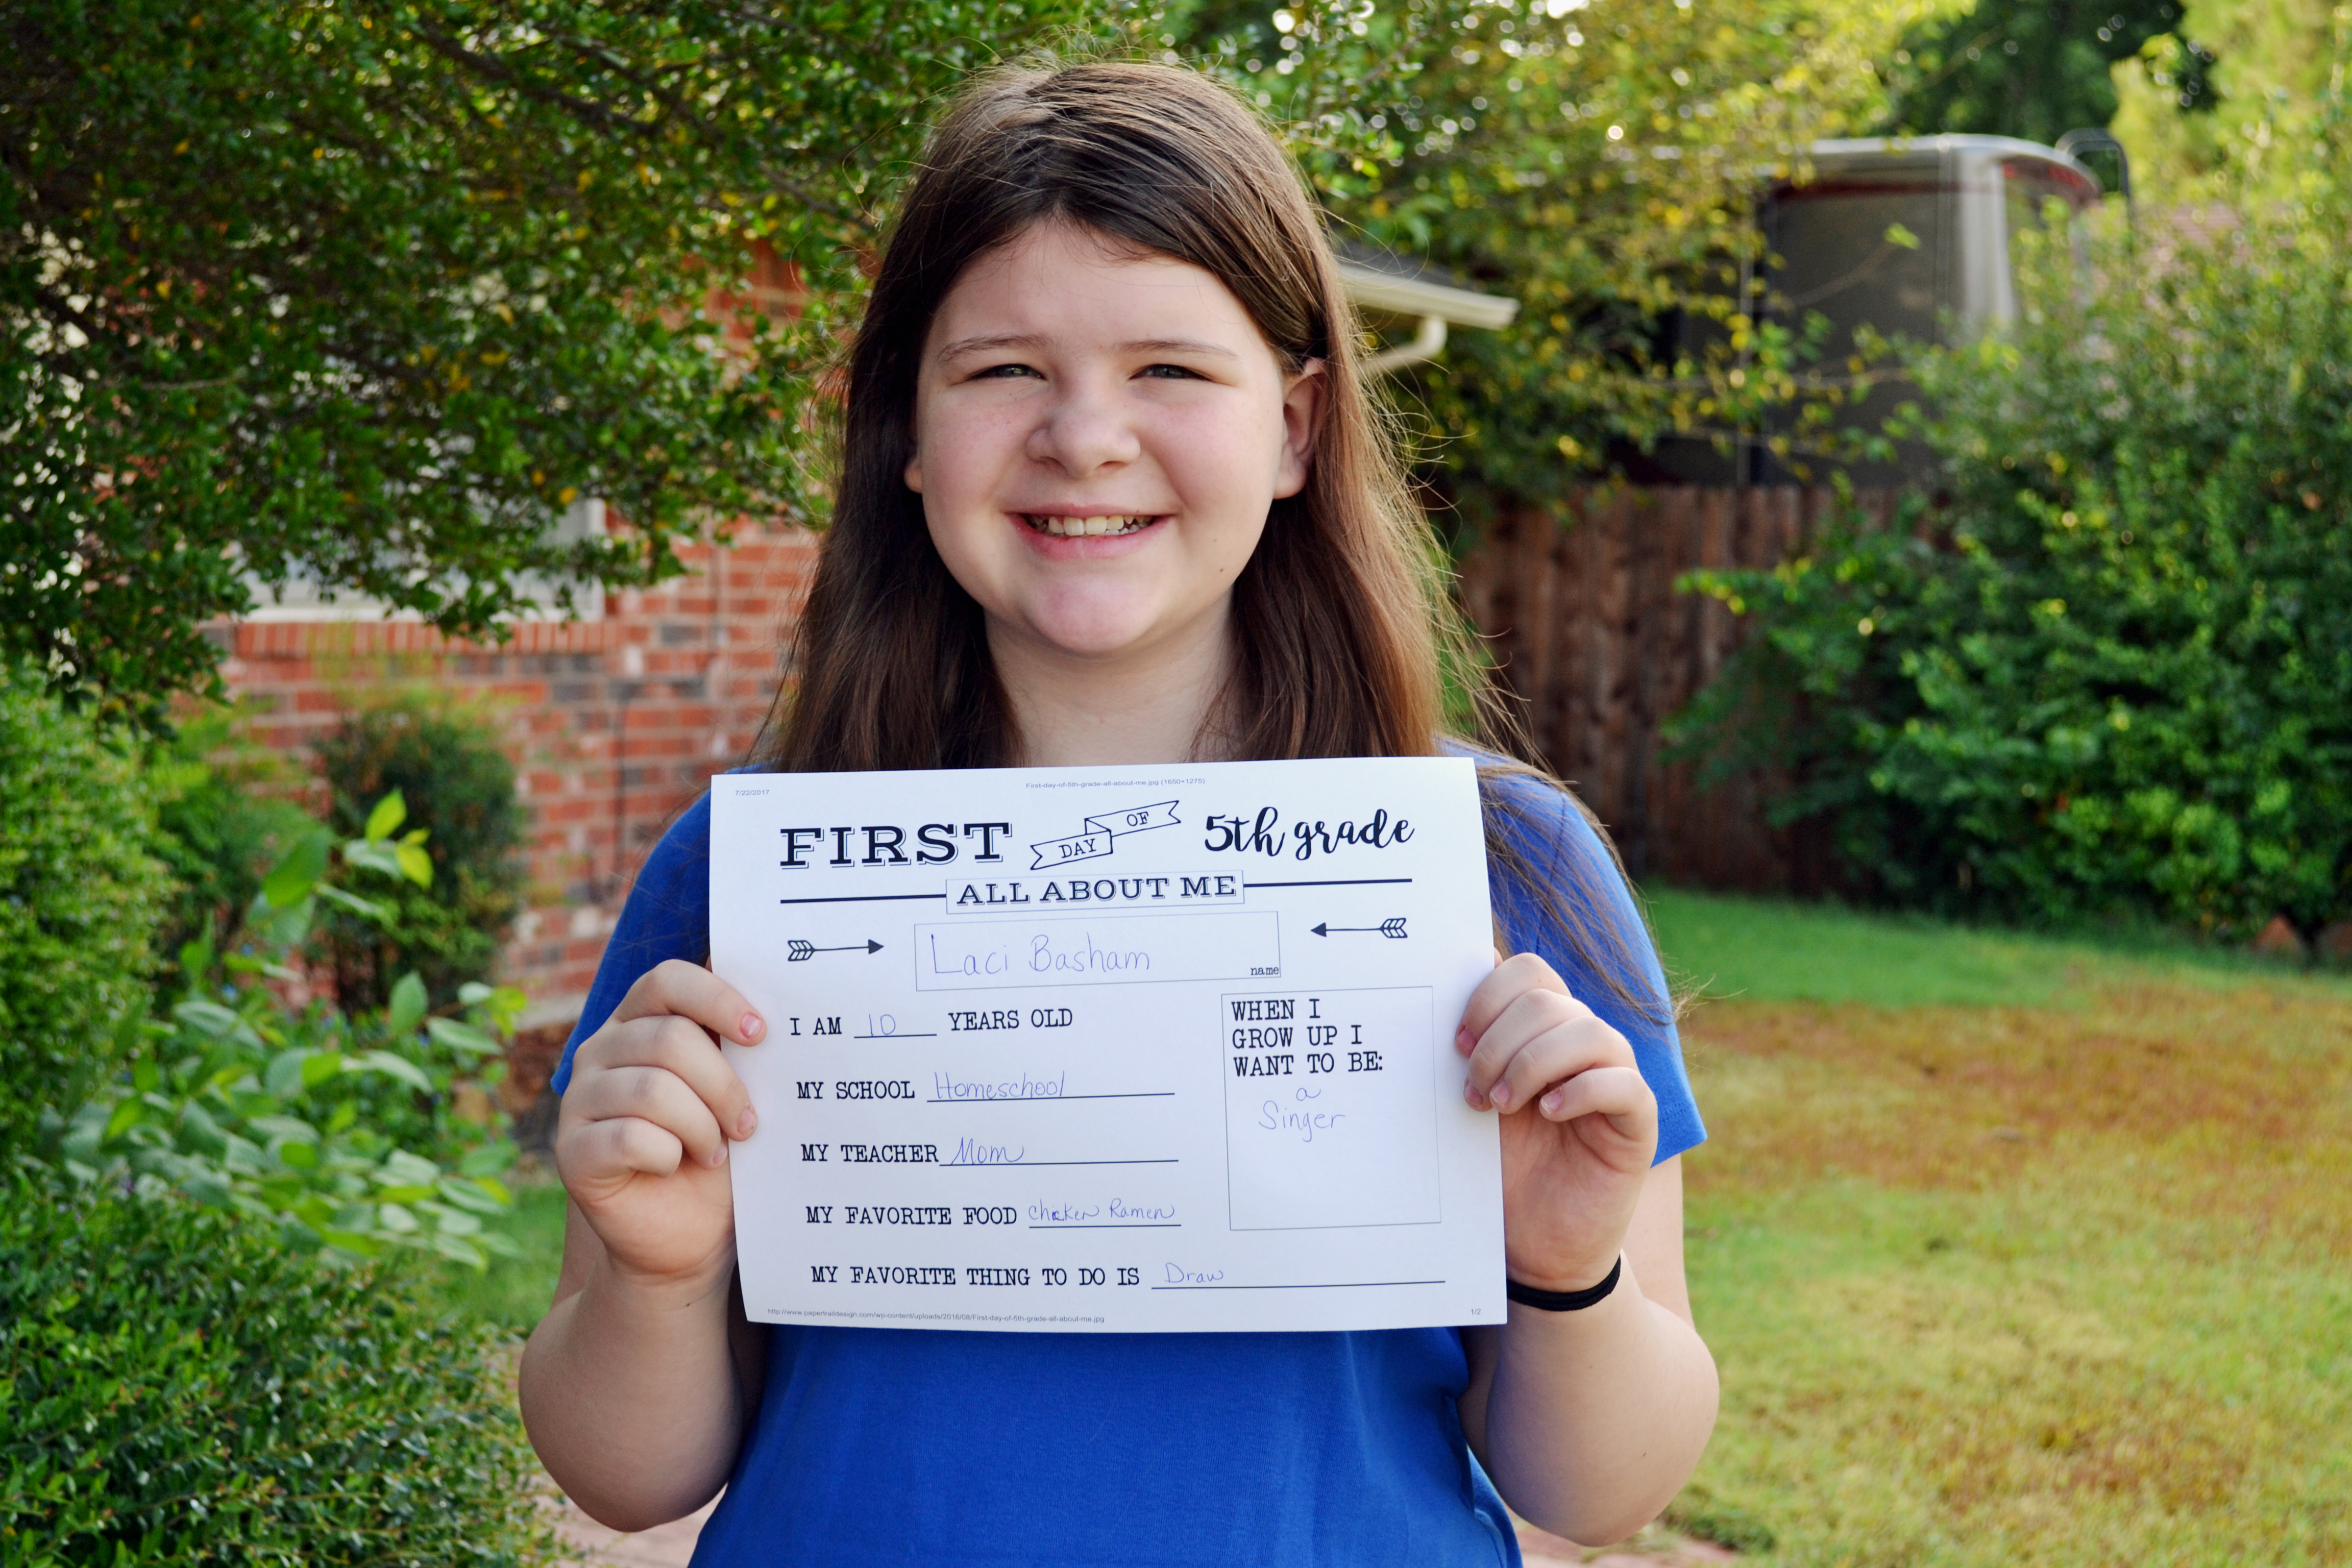 7/22/2017 First-day-of-5th-grade-all-about-me.jpg (1650×1275)
FIRST DAY OF 5th grade
ALL ABOUT ME
Laci Basham
name
I AM 10 YEARS OLD
MY SCHOOL Homeschool
MY TEACHER Mom
MY FAVORITE FOOD Chicken Ramen
MY FAVORITE THING TO DO IS Draw
WHEN I
GROW UP I
WANT TO BE:
a
Singer
http://www.papertraildesign.com/wp-content/uploads/2016/08/First-day-of-5th-grade-all-about-me.jpg 1/2